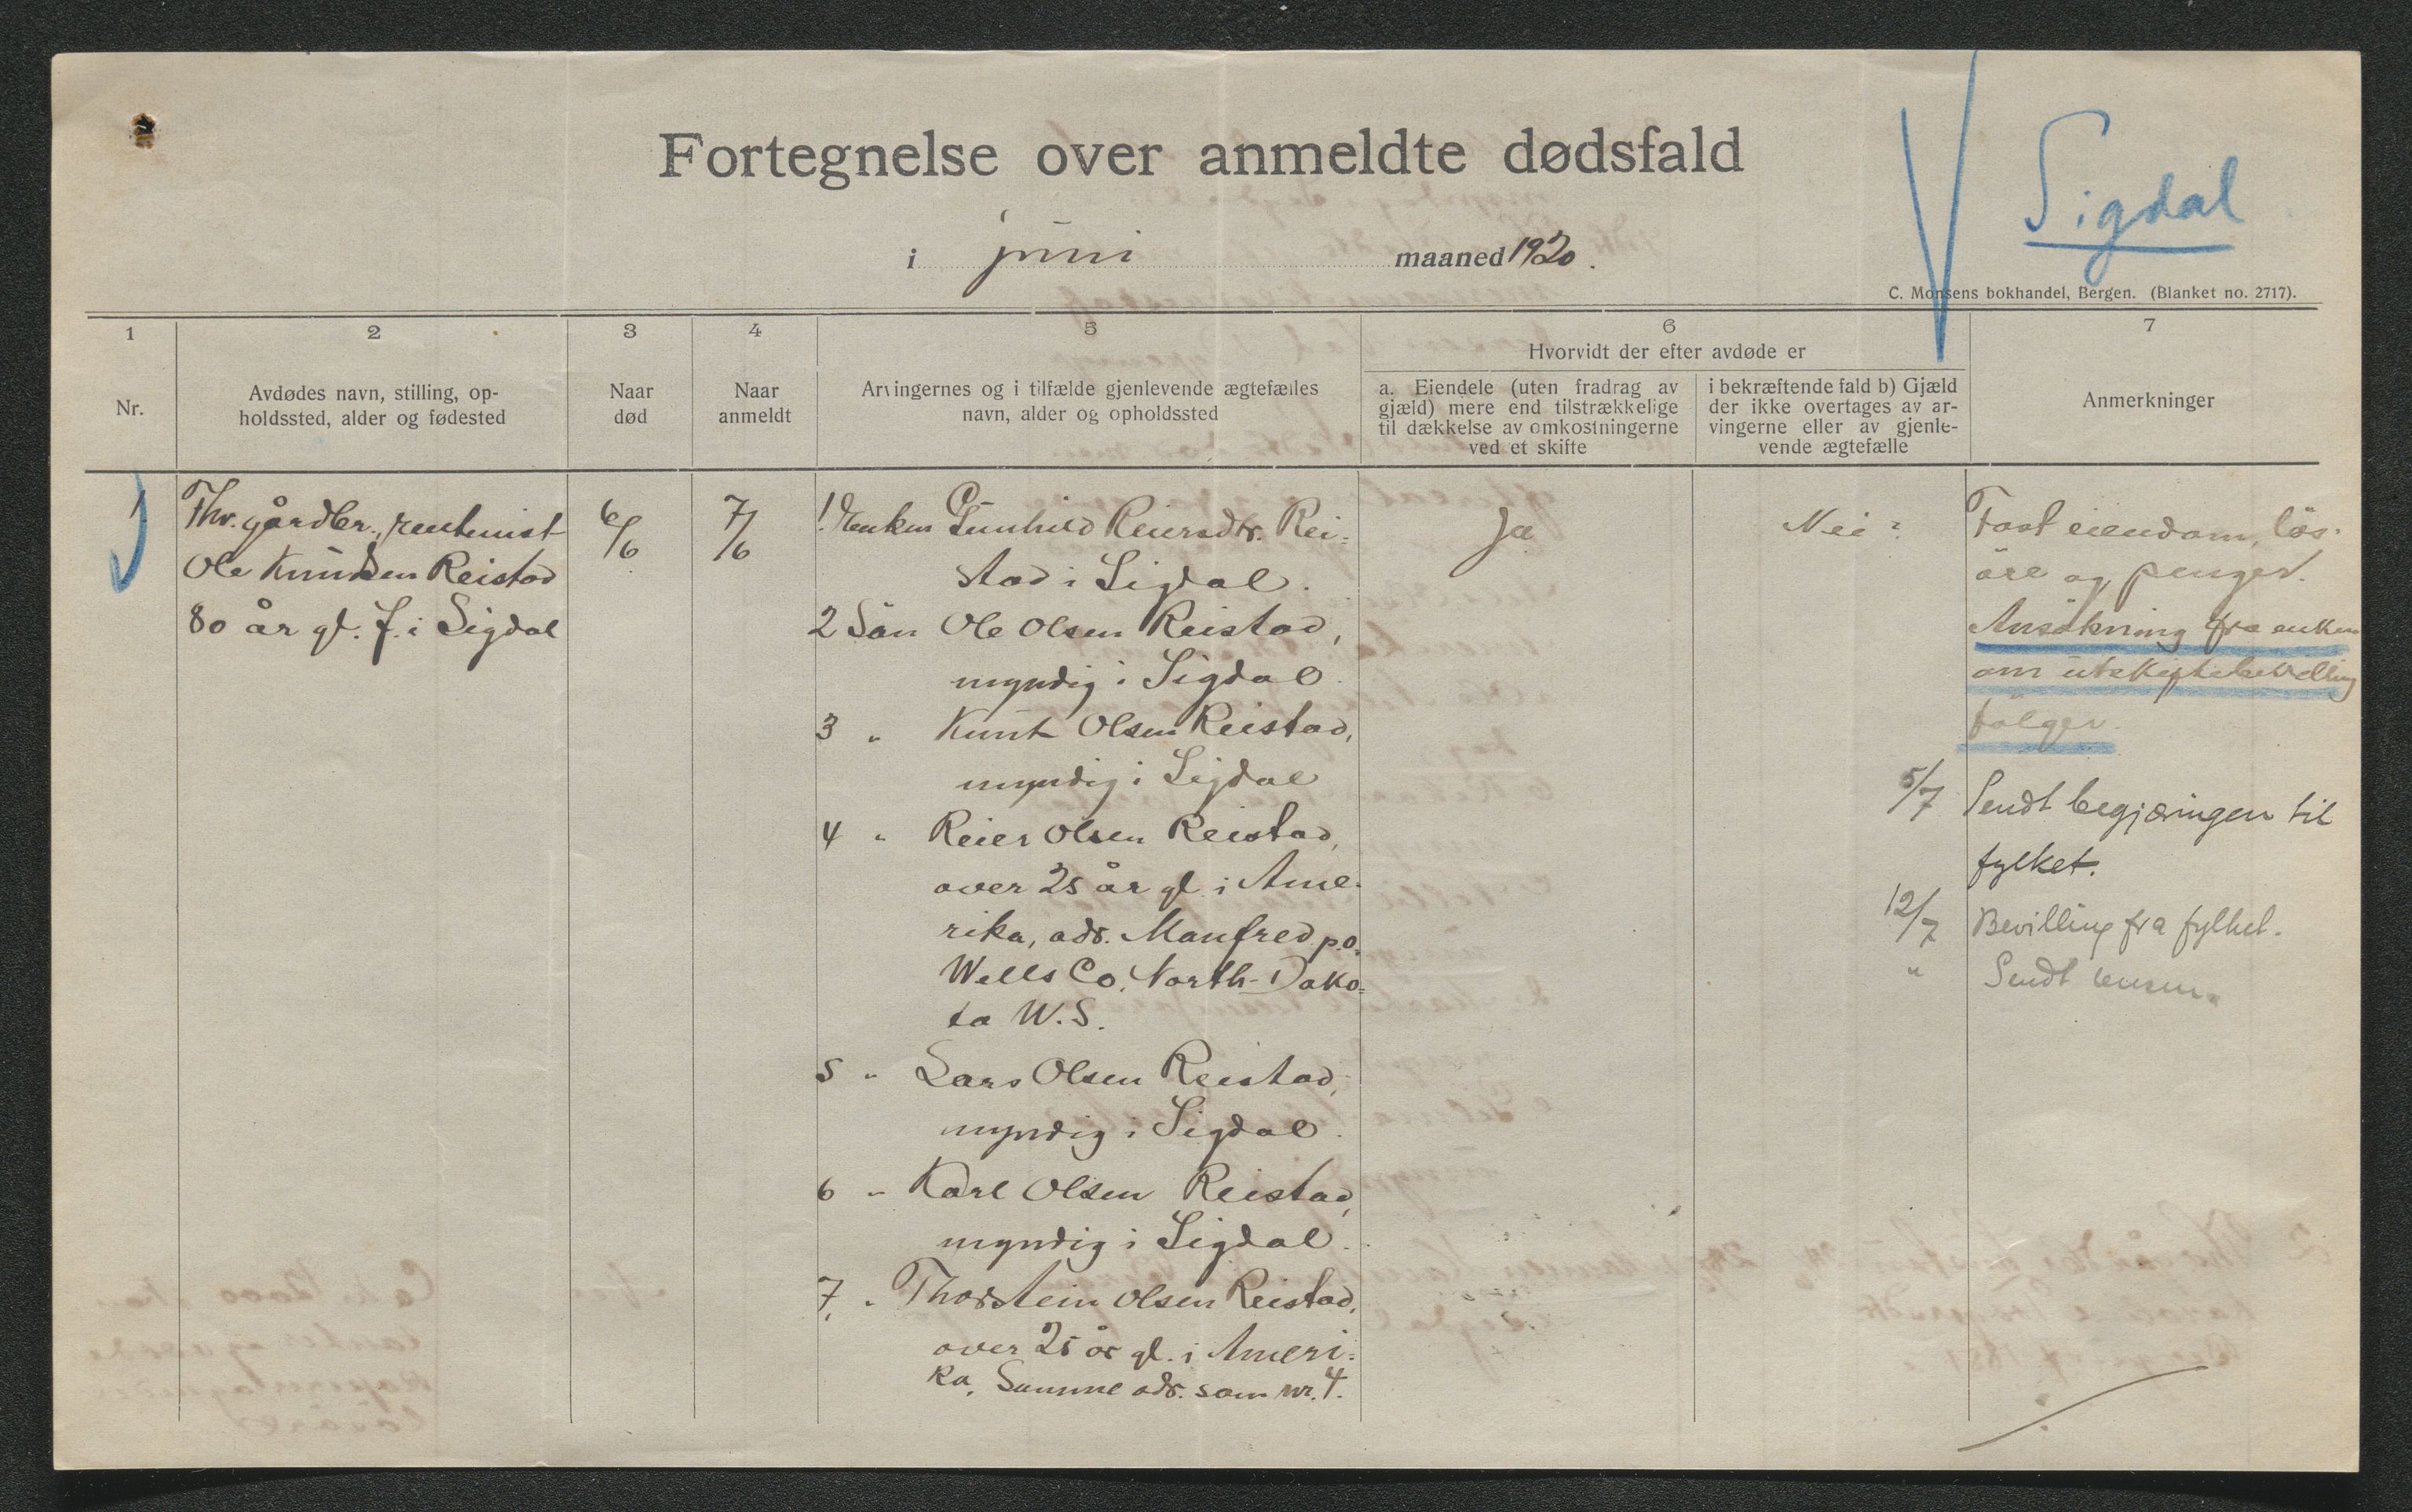 Fortegnelse over anmeldte dødsfald
i juni maaned 1920.
Sigdal
C. Monsens bokhandel, Bergen. (Blanket no. 2717).
1
Nr.
2
Avdødes navn, stilling, op-
holdssted, alder og fødested
3
Naar
død
4
Naar
anmeldt
5
Arvingernes og i tilfælde gjenlevende ægtefælles
navn, alder og opholdssted
6
Hvorvidt der efter avdøde er
a. Eiendele (uten fradrag av
gjæld) mere end tilstrækkelige
til dækkelse av omkostningerne
ved et skifte
i bekræftende fald b) Gjæld
der ikke overtages av ar-
vingerne eller av gjenle-
vende ægtefælle
7
Anmerkninger
1
Fhv. gårdbr., rentenist
Ole Knudsen Reistad
80 år gl. f. i Sigdal
6/6
7/6
1. Enken Gunhild Reiersdtr. Rei-
stad i Sigdal.
2 Sön Ole Olsen Reistad,
myndig i Sigdal.
3 " Knut Olsen Reistad,
myndig i Sigdal
4 " Reier Olsen Reistad,
over 25 år gl. i Ame-
rika, adr. Manfred p.o.
Wells Co. North-Dako-
ta W.S.
5 " Lars Olsen Reistad,
myndig i Sigdal.
6 " Karl Olsen Reistad,
myndig i Sigdal.
7. " Thorstein Olsen Reistad,
over 25 år gl. i Ameri-
ka, Samme adr. som nr. 4.
Ja
Nei?
Fast eiendom, lös-
öre og penger.
Ansökning fra enken
om utskiftebevilling
fölger.
5/7 Sendt begjæringen til
fylket.
12/7 Bevilling fra fylket.
" Sendt lensm.